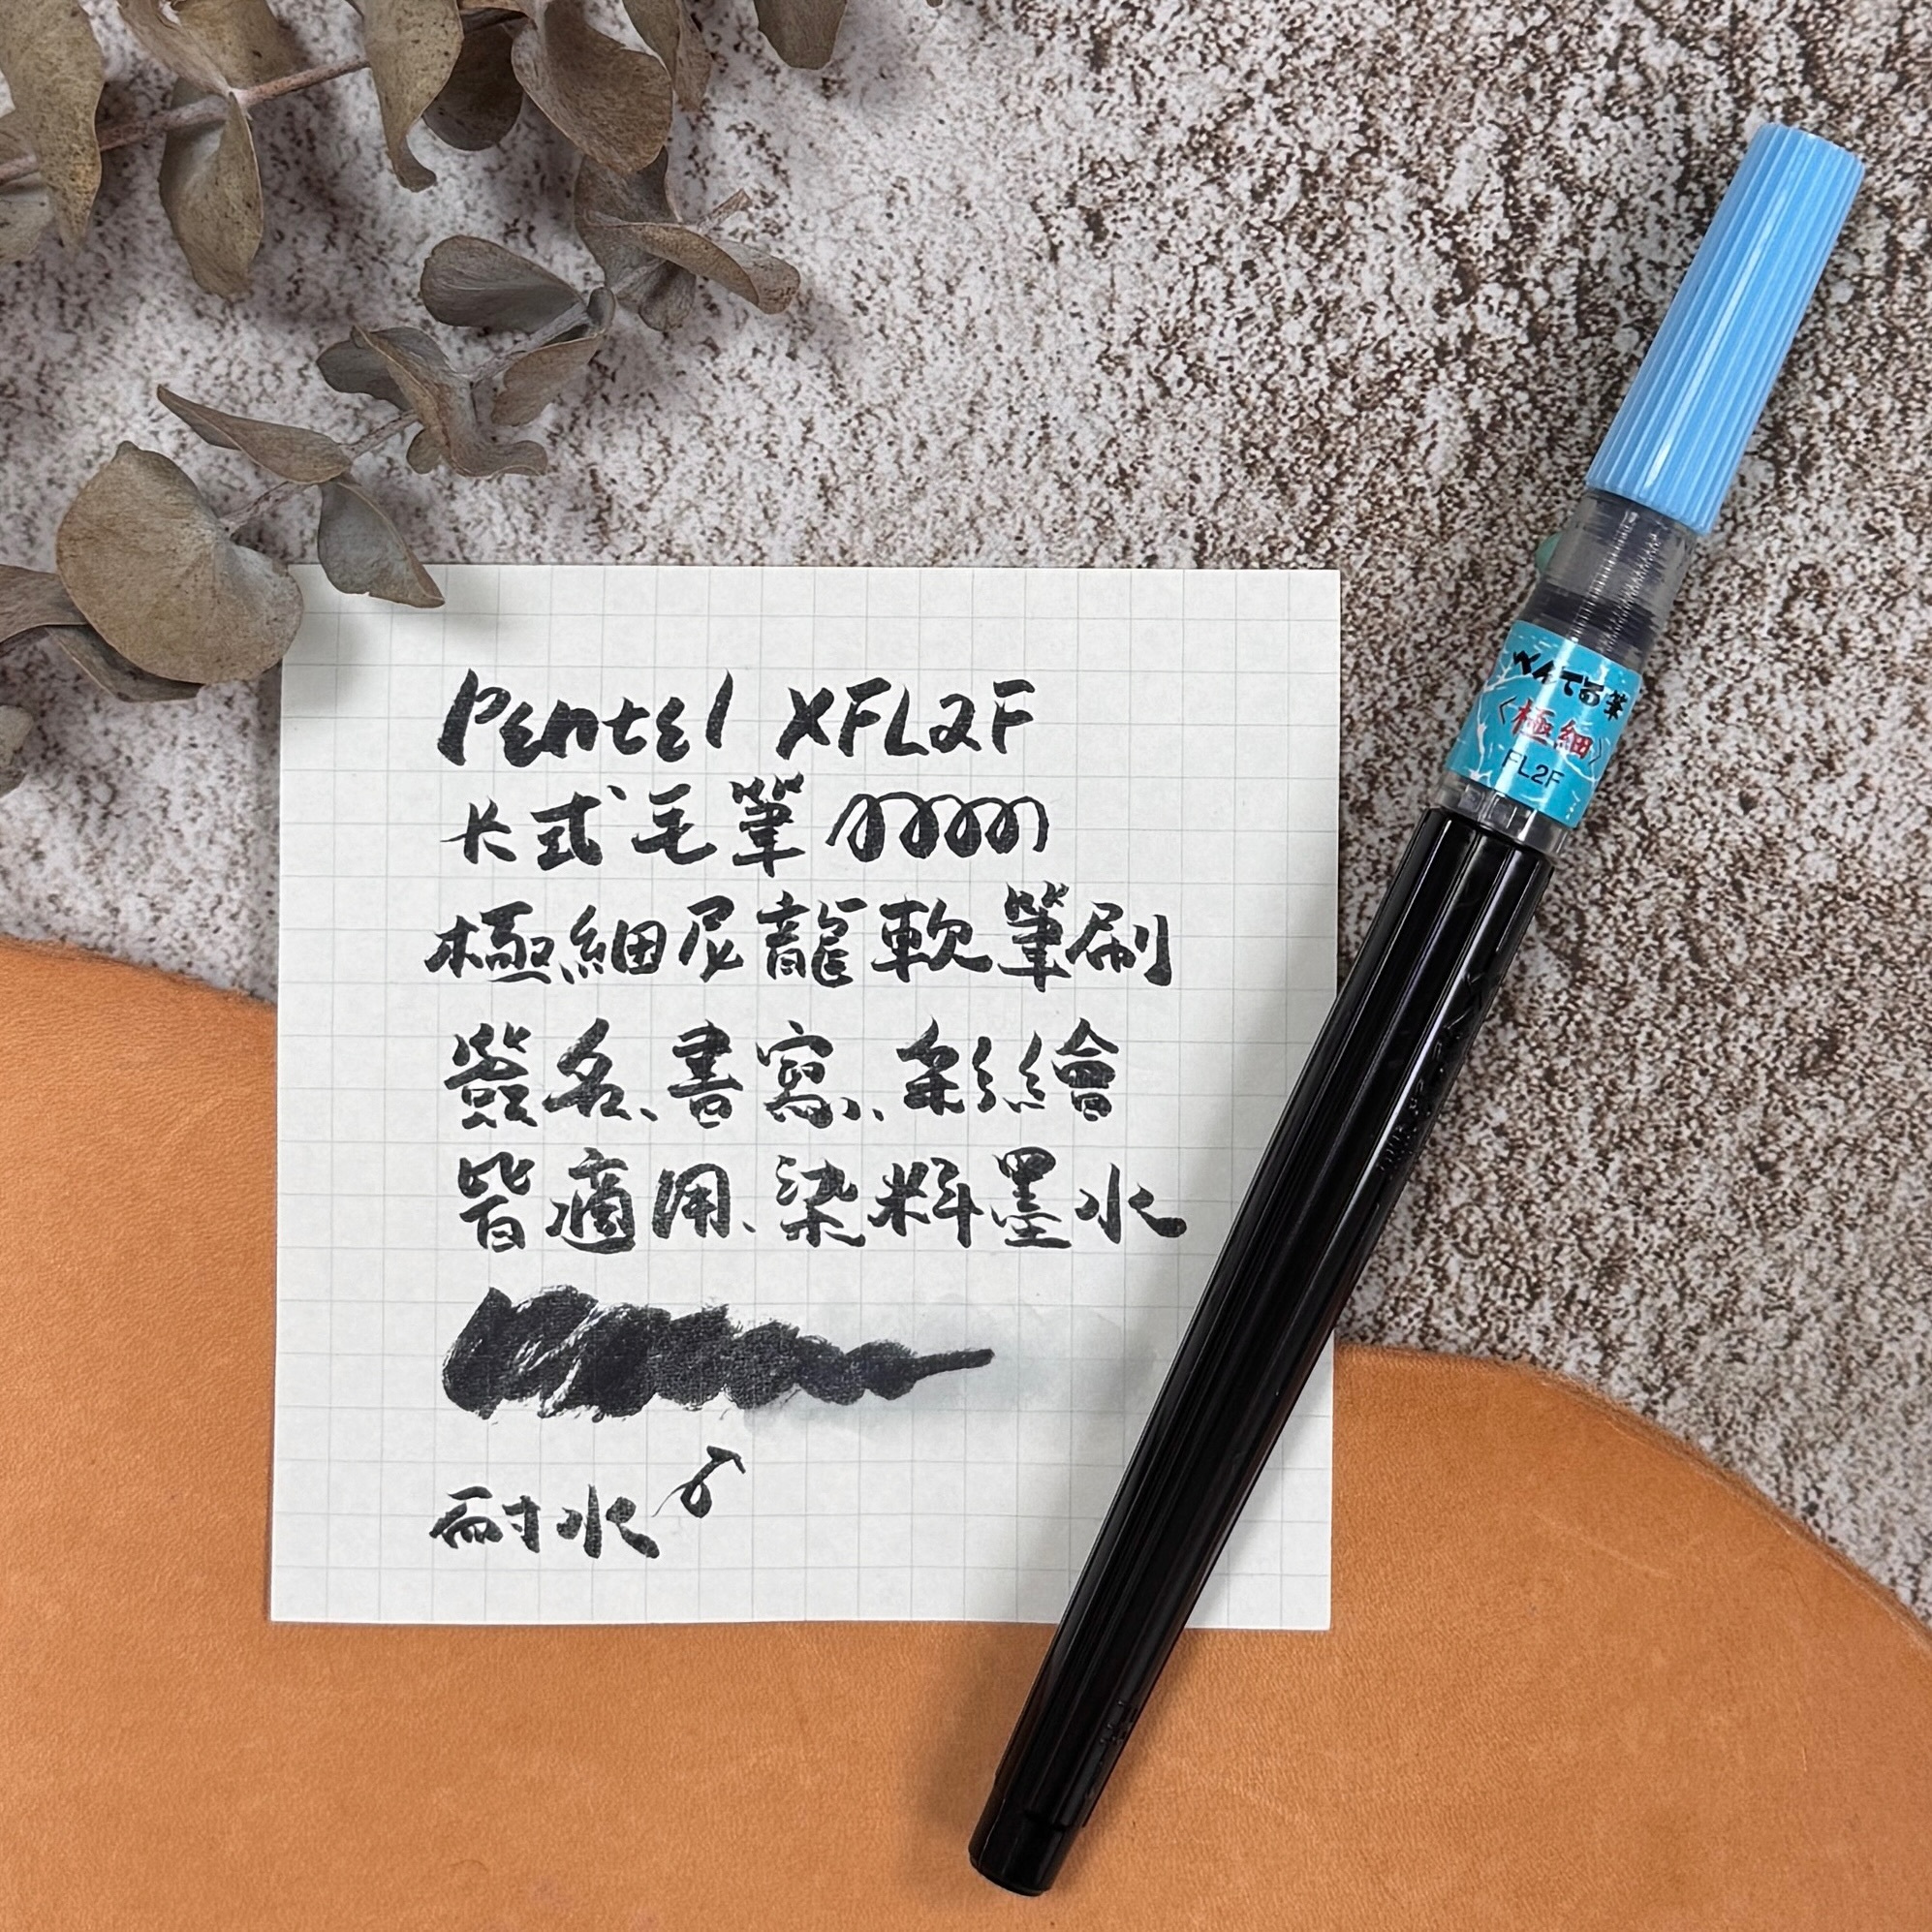 Pentel XFL2F
卡式毛筆
極細尼龍軟筆刷
簽名、書寫、彩繪
皆適用、染料墨水
耐水
筆
〈極細〉
FL2F